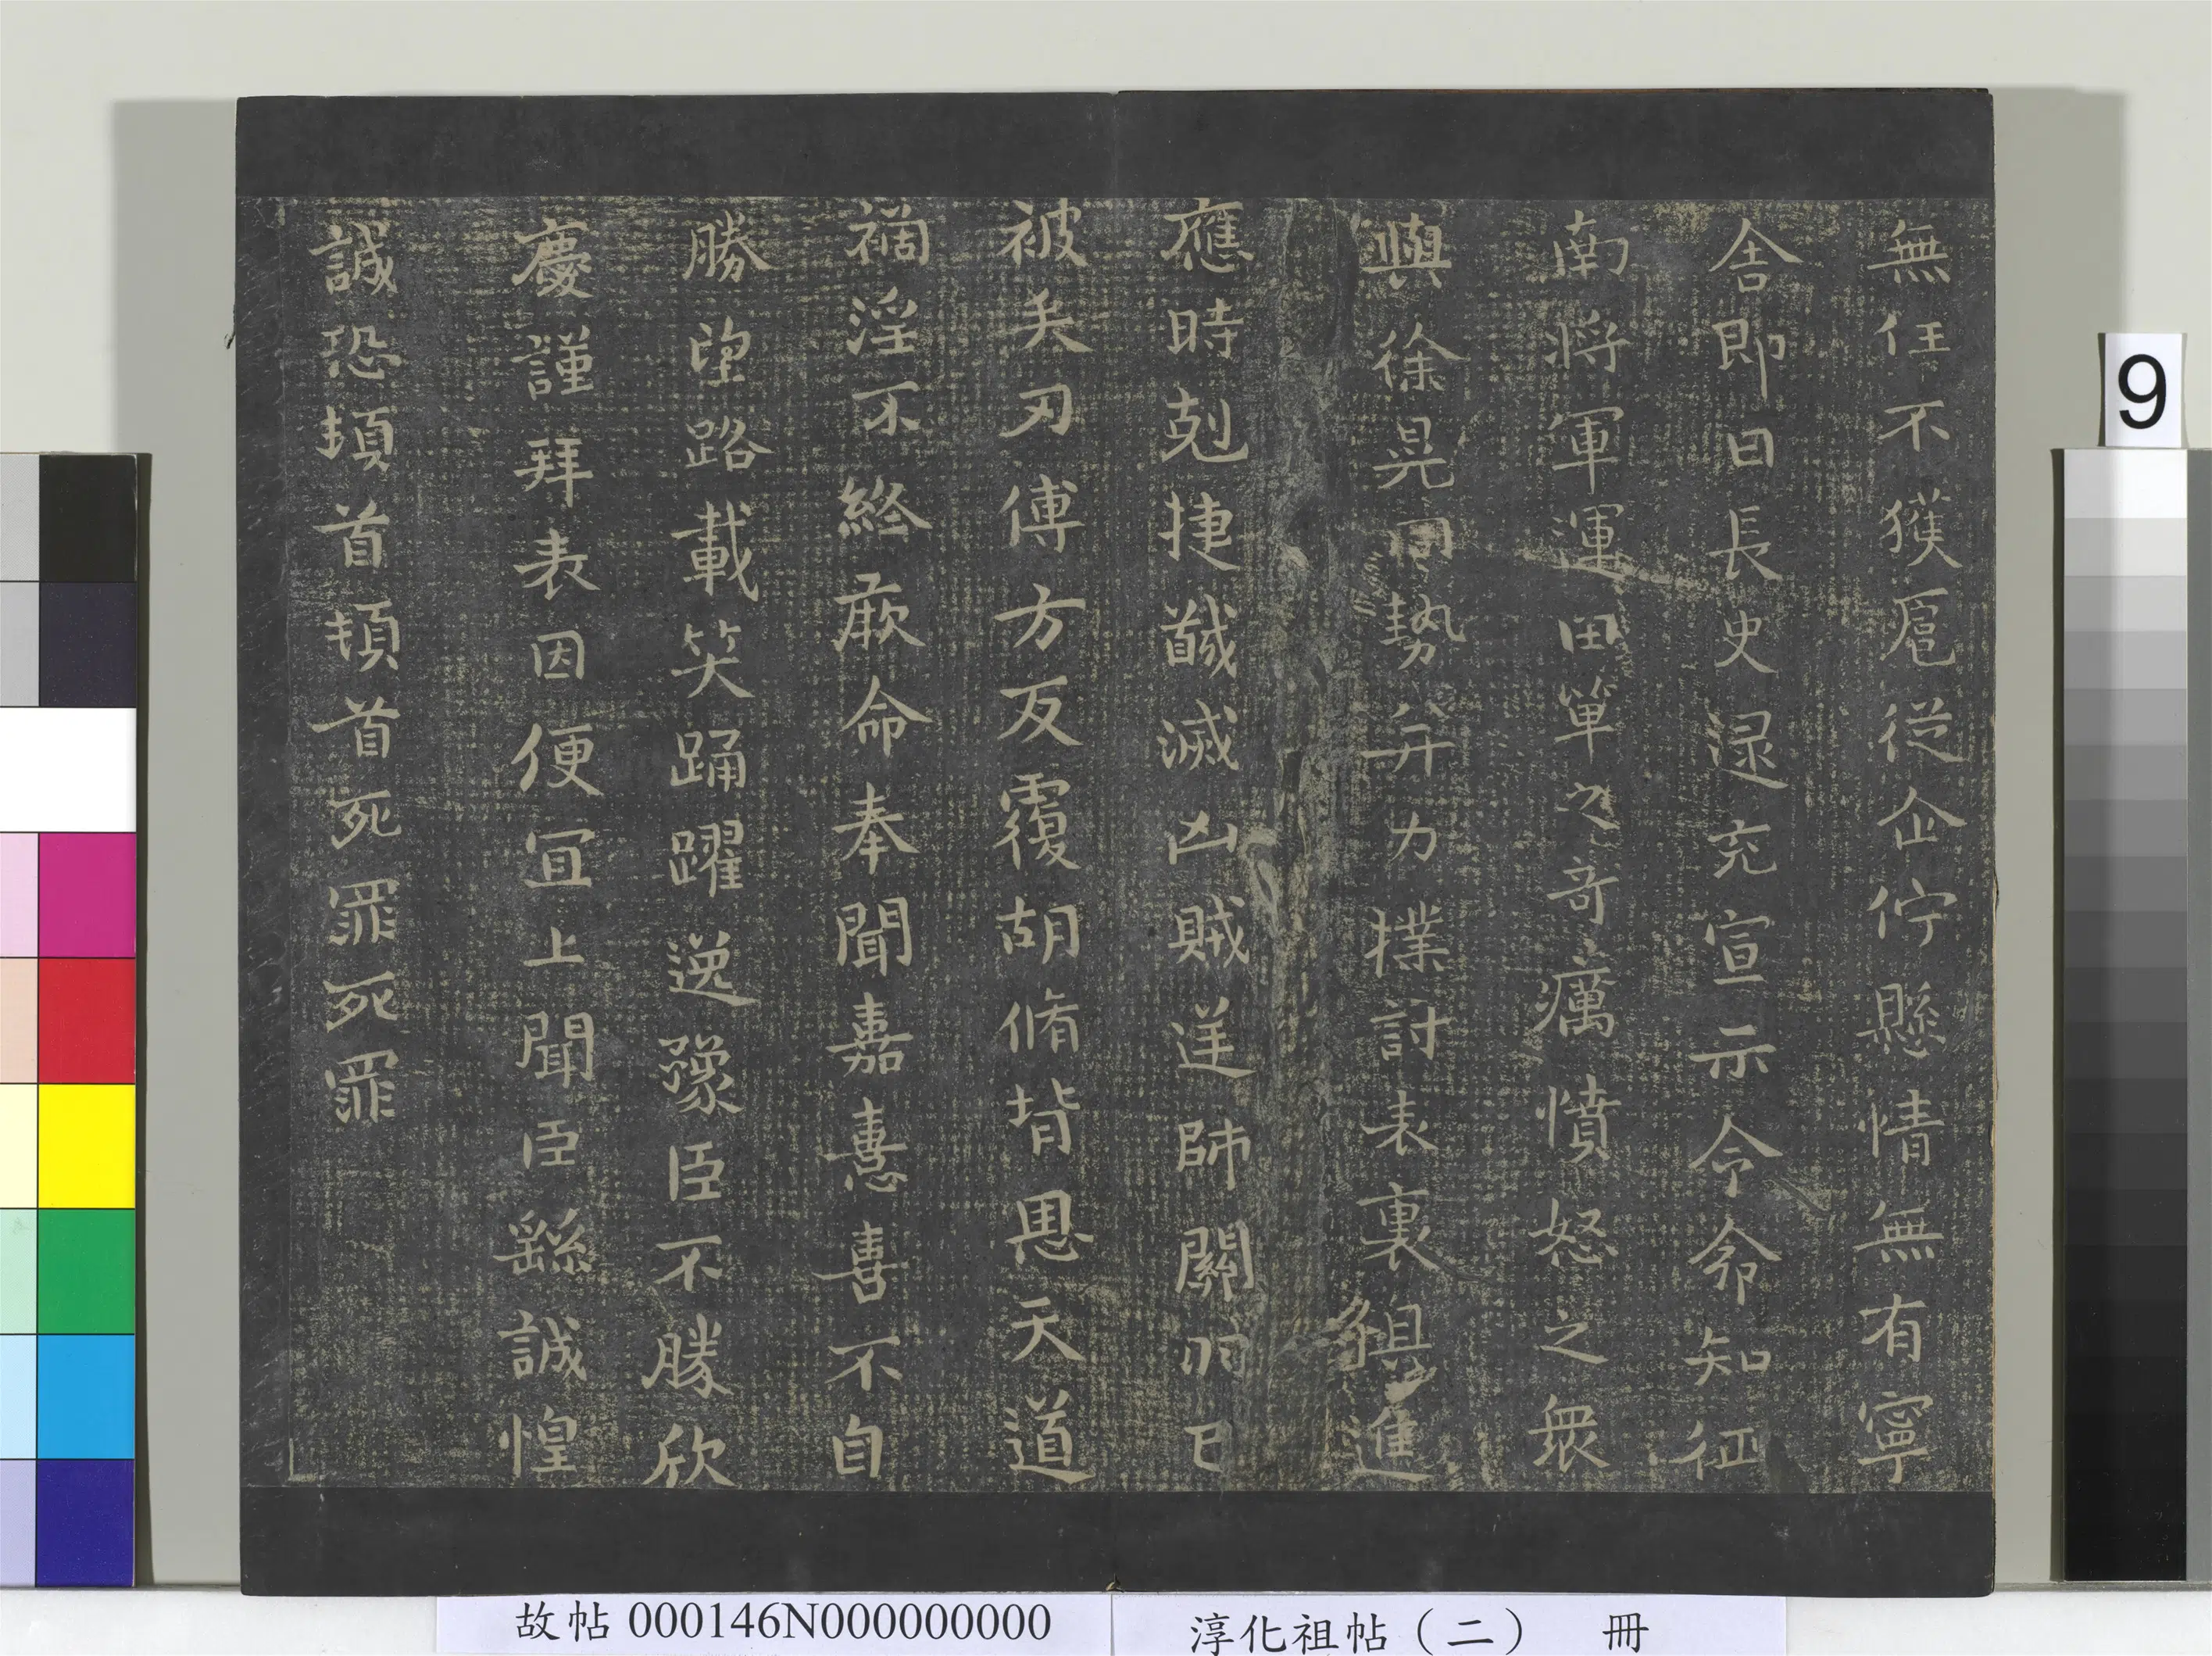 無任不獲扈從企佇懸情無有寧
舍即日長史逯充宣示令命知征
南將軍運田單之奇厲憤怒之衆
與徐晃同勢并力撲討表裏俱進
應時剋捷馘滅凶賊送師關羽已
被矢刃傅方反覆胡脩背恩天道
禍淫不終厥命奉聞嘉憙喜不自
勝望路載笑踊躍逸豫臣不勝欣
慶謹拜表因便宜上聞臣繇誠惶
誠恐頓首頓首死罪死罪
9
故帖000146N000000000
淳化祖帖（二） 冊